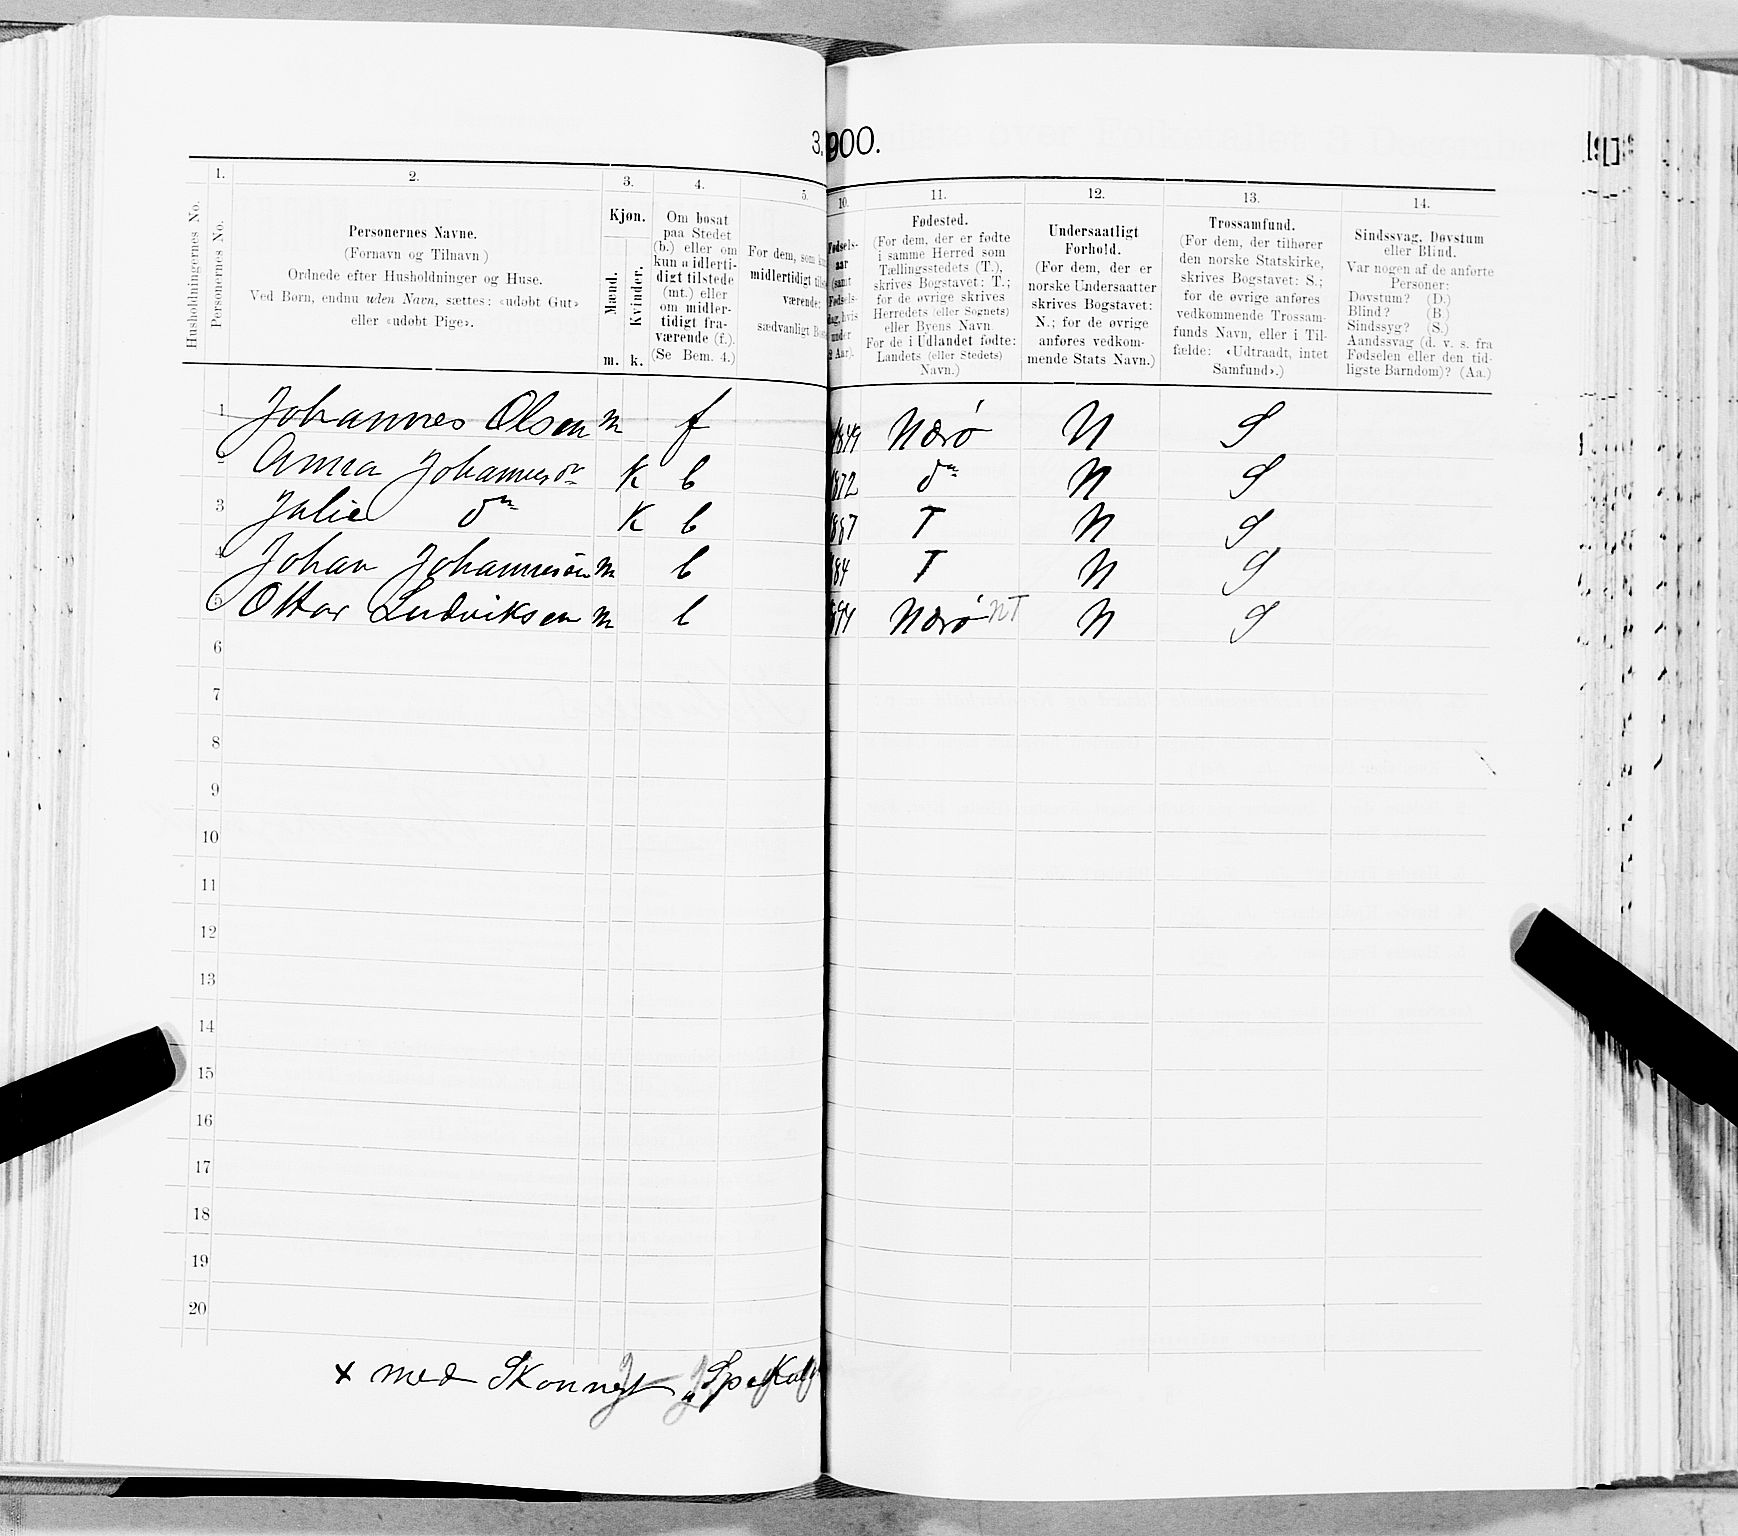 3.
900.
1. 2. 3. 4. 5. 10. 11. 12. 13. 14.
Husholdningernes No.
Personernes No.
Personernes Navne.
(Fornavn og Tilnavn)
Ordnede efter Husholdninger og Huse.
Ved Børn, endnu uden Navn, sættes: «udøbt Gut»
eller «udøbt Pige».
Kjøn.
Mænd.
Kvinder.
m. k.
Om bosat
paa Stedet
(b.) eller om
kun midlerti-
digt tilstede
(mt.) eller
om midler-
tidigt fra-
værende (f.).
(Se Bem. 4.)
For dem, som
midlertidigt
værende:
sædvanligt
Fødsels-
aar
(samt
Fødsels-
dag, hvis
under
2 Aar).
Fødested.
(For dem, der er fødte
i samme Herred som
Tællingsstedets (T.),
skrives Bogstavet: T.;
for de øvrige skrives
Herredets (eller Sognets)
eller Byens Navn
For de i Udlandet fødte:
Landets (eller Stedets)
Navn.)
Undersaatligt
Forhold.
(For dem, der er
norske Undersaatter
skrives Bogstavet:
N.; for de øvrige
anføres vedkom-
mende Stats Navn.)
Trossamfund.
(For dem, der tilhører
den norske Statskirke,
skrives Bogstavet: S.;
for de øvrige anføres
vedkommende Trossam-
funds Navn, eller i Til-
fælde: «Udtraadt, intet
Samfund».)
Sindssvag, Døvstum
eller Blind.
Var nogen af de anførte
Personer:
Døvstum? (D.)
Blind? (B.)
Sindssyg? (S.)
Aandssvag (d. v. s. fra
Fødselen eller den tid-
ligste Barndom)? (Aa.)
1 Johannes Olsen m f 1849 Nærø N S
2 Anna Johannesdr K b 1872 do N S
3 Julie do K b 1887 T N S
4 Johan Johannesen m b 84 T N S
5 Ottar Ludviksen m b 94 Nærø NT N S
6
7
8
9
10
11
12
13
14
15
16
17
18
19
20
x med Skonnert